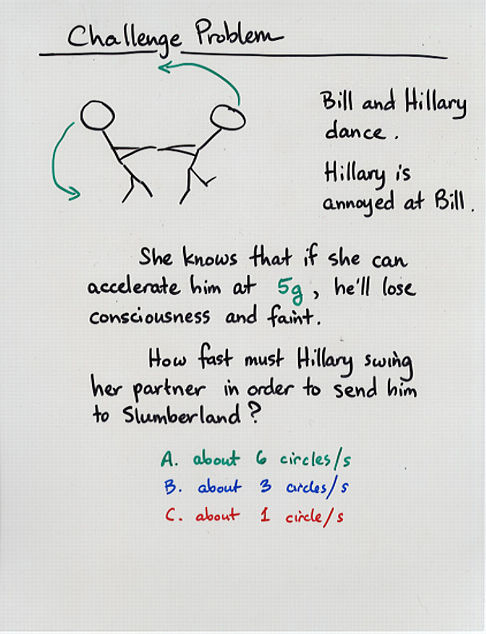 Challenge Problem
Bill and Hillary
dance.
Hillary is
annoyed at Bill.
She knows that if she can
accelerate him at 5g, he'll lose
consciousness and faint.
How fast must Hillary swing
her partner in order to send him
to Slumberland?
A. about 6 circles/s
B. about 3 circles/s
C. about 1 circle/s